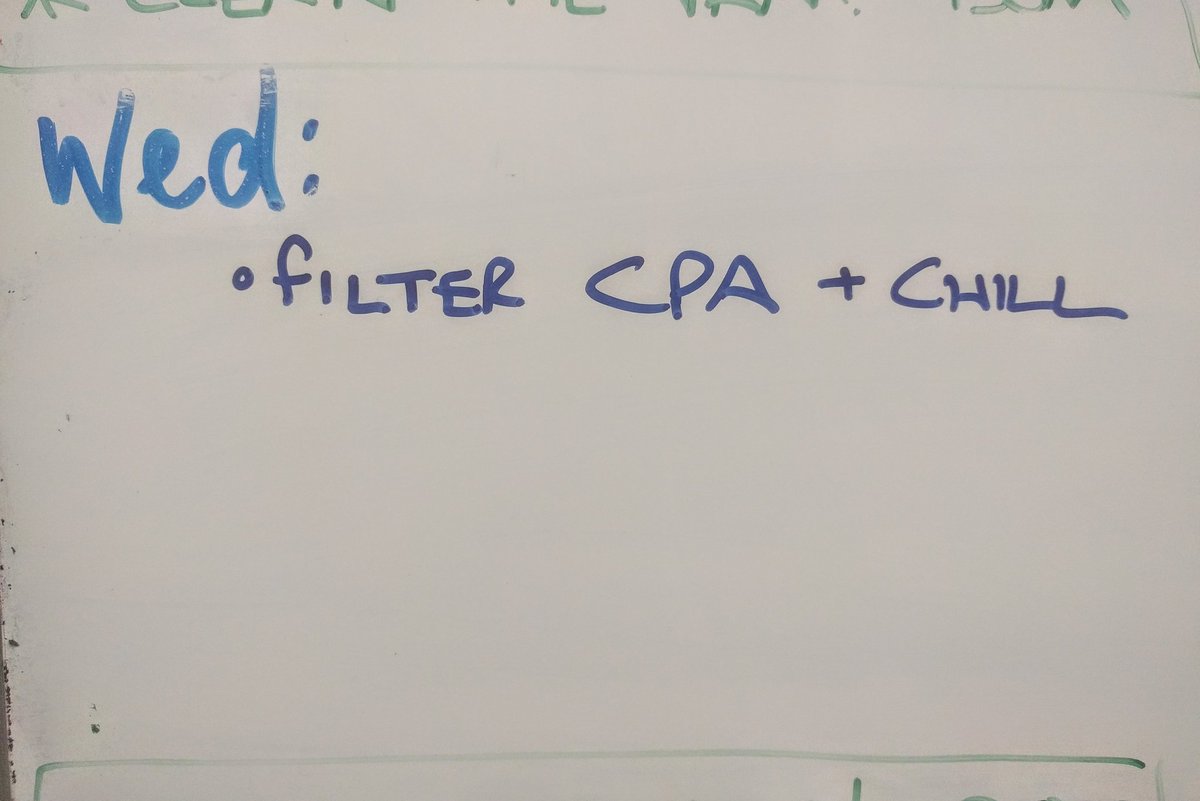 Wed:
• FILTER CPA + CHILL